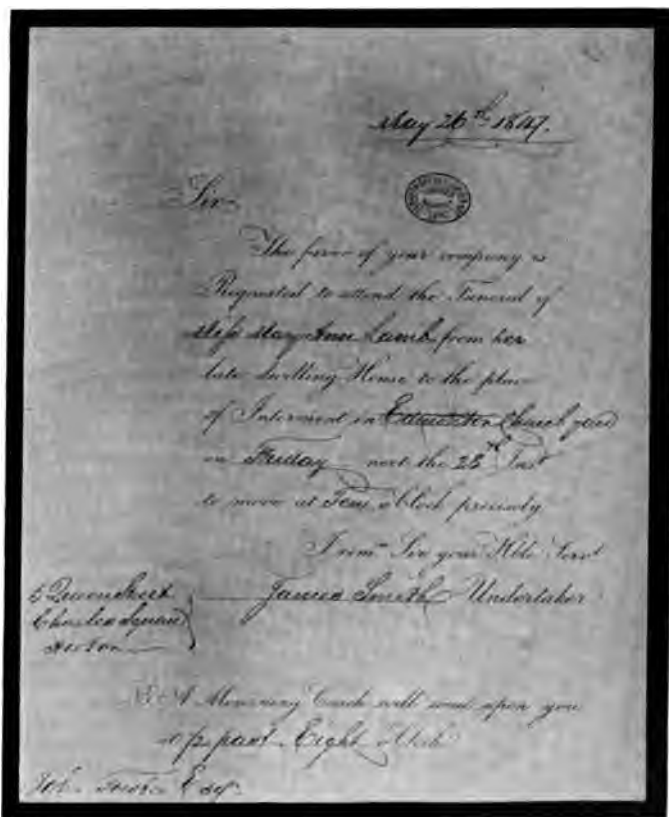 May 26th 1847.
Sir
The favor of your company is
Requested to attend the Funeral of
Miss Mary Ann Lamb from her
late dwelling House to the place
of Interment in Edmonton Church yard
on Friday next the 28th Inst
to move at Ten o'Clock precisely
I rem Sir your Hble Servt
James Smith Undertaker
5 Queen Street
Charles Square
Hoxton
A Mourning Coach will upon you
past Eight o'Clock
Forster Esqr